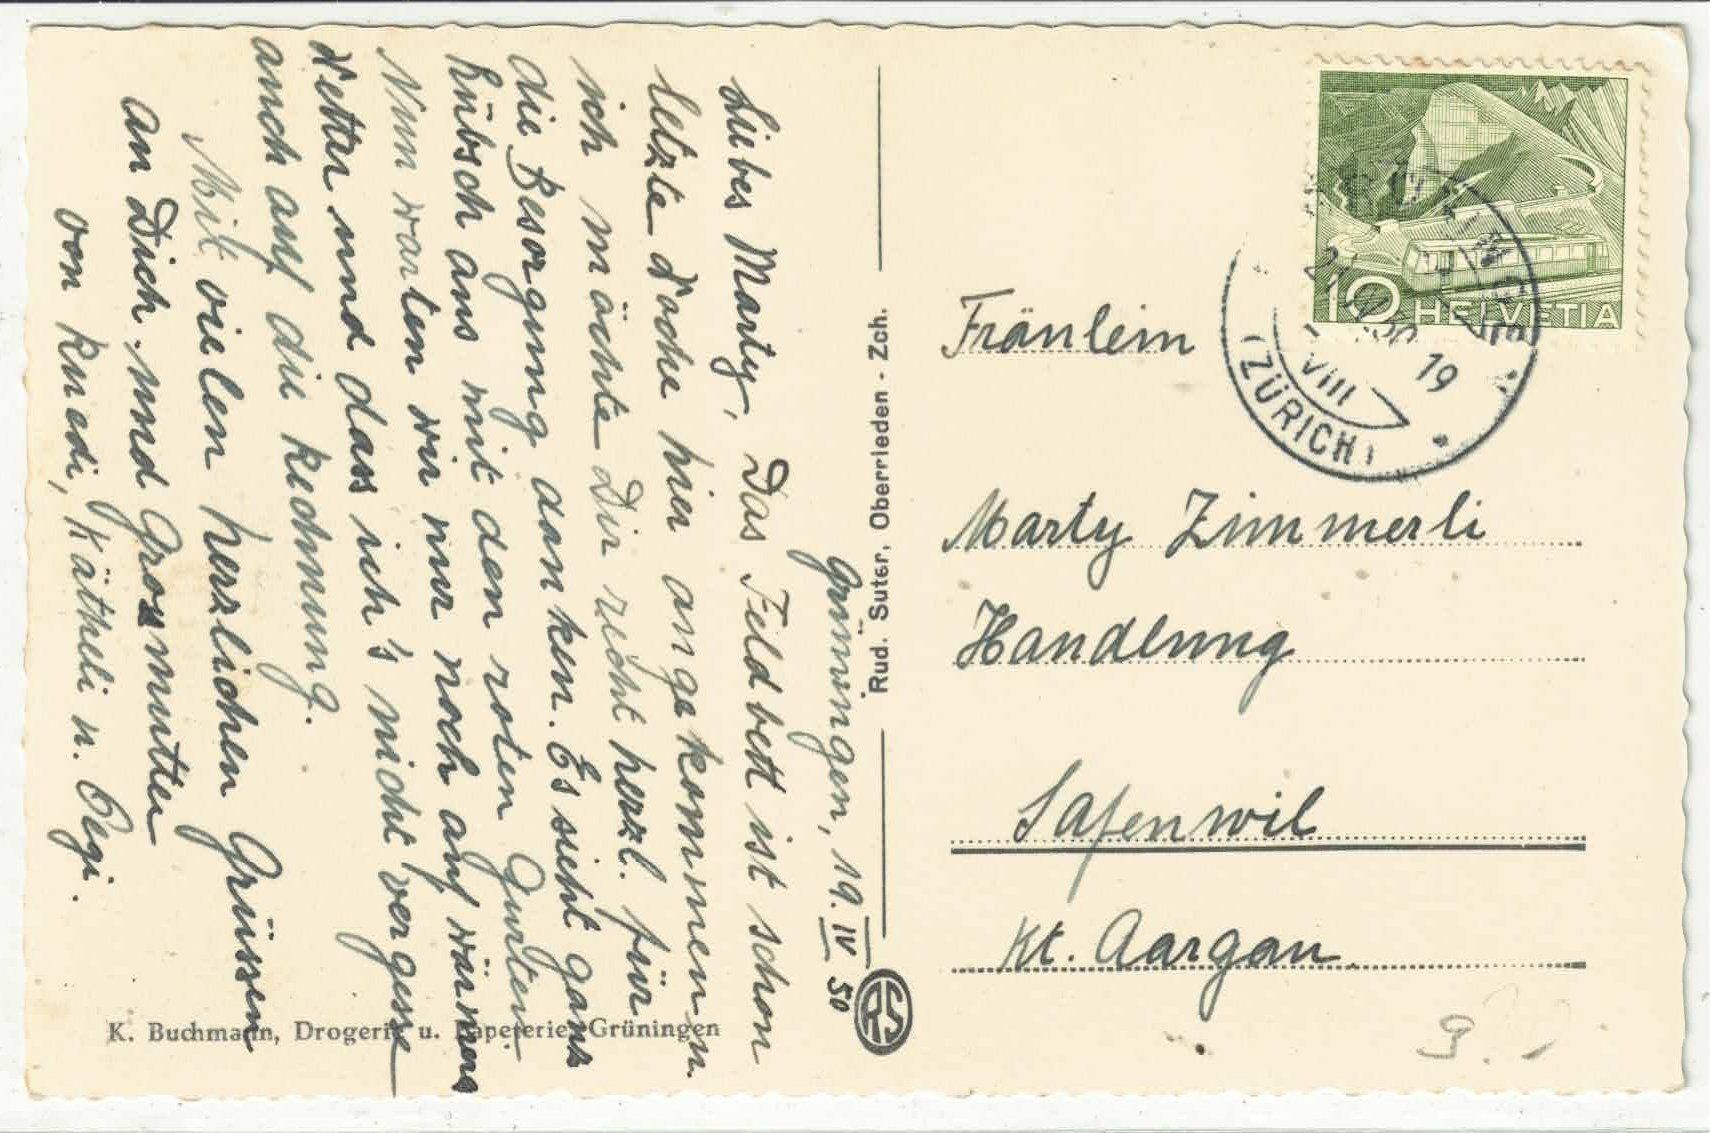 Grüningen, 19. IV 50
Liebes Marty, Das Feldbett ist schon
letzte Woche hier angekommen u.
ich möchte Dir recht herzl. für
die Besorgung danken. Es sieht ganz
hübsch aus mit den roten Gurten.
Nun warten wir nur noch auf wärmeres
Wetter und dass ich's nicht vergesse
auch auf die Rechnung.
Mit vielen herzlichen Grüssen
an Dich und Grosmutter
von Ruedi, Kätheli u. Regi.
Rud. Suter, Oberrieden - Zch.
RS
K. Buchmann, Drogerie u. Papeterie, Grüningen
10 HELVETIA
19
VIII
(ZÜRICH)
Fräulein
Marty Zimmerli
Handlung
Safenwil
Kt. Aargau